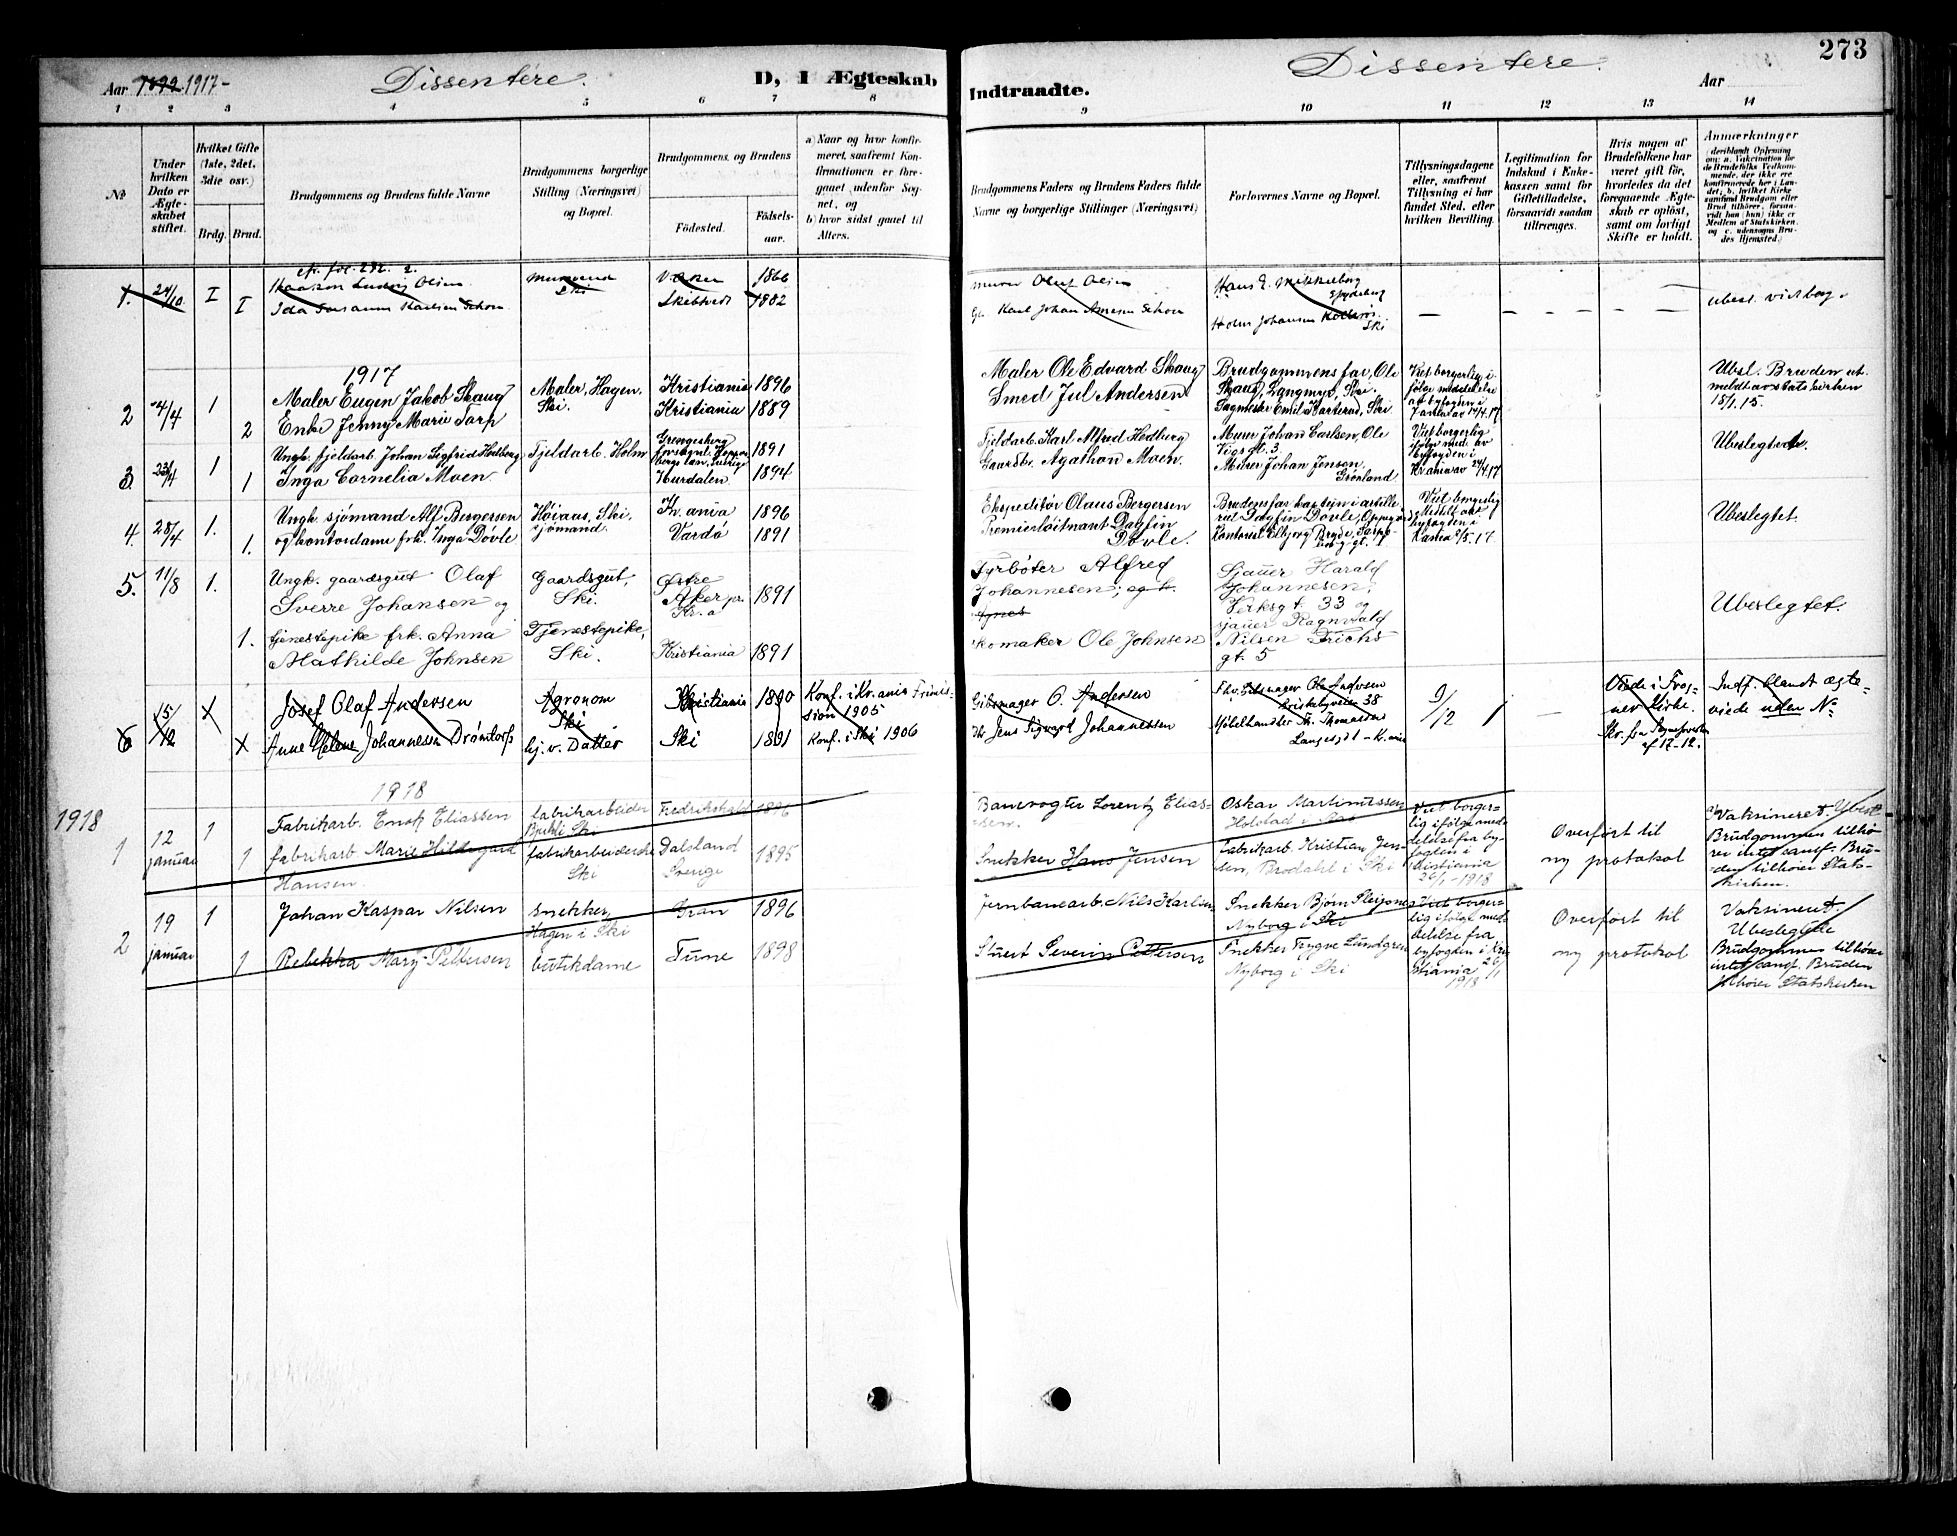 Aar 1892. 1917-
Dissentere.
D, I Ægteskab
Indtraadte.
Dissentere.
Aar
273
1 2 3 4 5 6 7 8 9 10 11 12 13 14
No
Under hvilken Dato er Ægteskabet stiftet.
Hvilket Gifte (1ste, 2det, 3die osv.)
Brdg. Brud.
Brudgommens og Brudens fulde Navne
Brudgommens borgerlige Stilling (Næringsvei) og Bopæl.
Brudgommens og Brudens
Fødested.
Fødsels-aar.
a) Naar og hvor konfirmeret, saafremt Konfirmationen er foregaaet udenfor Sognet, og
b) hvor sidst gaaet til Alters.
Brudgommens Faders og Brudens Faders fulde Navne og borgerlige Stillinger (Næringsvei)
Forlovernes Navne og Bopæl.
Tillysningsdagene eller, saafremt Tillysning ei har fundet Sted, efter hvilken Bevilling.
Legitimation for Indskud i Enkekassen samt for Giftetilladelse, forsaavidt saadan tiltrænges.
Hvis nogen af Brudefolkene har været gift før, hvorledes da det foregaaende Ægteskab er opløst, samt om lovligt Skifte er holdt.
Anmærkninger (deriblandt Oplysning om: a. Vakcination for de Brudefolks Vedkommende, der ikke ere konfirmerede her i Landet; b. hvilket Kirkesamfund Brudgom eller Brud tilhører, forsaavidt han (hun) ikke er Medlem af Statskirken, og c. udensogns Brudes Hjemsted.)
1. 24/10 I
Ski
1866
Murer Oluf Olsen
I
1882
Karl Johan
Ski
— — — —
1917
2 1
Maler Eugen Jakob Skaug
Maler, Hagen, Ski.
Kristiania 1896
Maler Ole Edvard Skaug
Brudgommens far, Ole Skaug, Langmyr, Ski.
Ubsl. Bruden utmeldt av statskirken 15/1.15.
2
Enke Jenny Marie Torp
Kristiania 1889
Smed Jul Andersen
Emil Ski
3. 23/4 1
Ungk. fjeldarb. Johan Sigfrid Hedberg
Fjeldarb. Holm
1891
Fjeldarb. Karl Alfred Hedberg
Murer Johan Carlsen, Ole Vigs gt. 3
Ubeslegtede.
1
Inga Cornelia Moen
Hurdalen 1894
Gaardbr. Agathon Moen.
Murer Johan Jensen, Grønland
4. 28/4 1.
Ungk. sjømand Alf Bergersen
Høiaas, Ski. sjømand.
Kr.ania 1896
Ekspeditør Olaus Bergersen
Ubeslegtet.
1.
og kontordame frk. Inga Døvle
Vardø 1891
Premierløitnant Dagfin Døvle.
5. 11/8 1.
Ungk. gaardsgut Olaf Sverre Johansen og
Gaardsgut, Ski.
Østre Aker pr. Kr.a 1891
Fyrbøter Alfred Johannesen;
Sjauer Harald Johannesen, Verksgt. 33 og
Ubeslegtet.
1.
tjenestepike frk. Anna Mathilde Johnsen
Tjenestepike, Ski.
Kristiania 1891
skomaker Ole Johnsen
sjauer Ragnvald Nilsen Frichs gt. 5
6 15/12 X
Josef Olaf Andersen
Agronom Ski
Kristiania 1890
Konf. i Kr.ania Frimission 1905
Gibsmager O. Andersen
Fhv. Gibsmager Ole Andersen Briskebyveien 38
9/12
Viede i Frogner Kirke.
Indf. blandt ægteviede uden No
X
Anne Helene Johannessen Drømtorp
hj.v. Datter
Ski 1891
Konf. i Ski 1906
Jens Sigvard Johannessen
Møbelhandler Th. Thomassen
1918
1918
1 12 januar 1
Fabrikarb. Enok Eliassen
fabrikarbeider Bjukli Ski
Fredrikshald 1896
Banevogter Lorentz Eliassen.
Oskar Martinussen Holstad i Ski
Viet borgerlig ifølge meddelelse fra byfogden i Kristiania 26/1-1918
Overført til ny protokol
Vaksineret.
Brudgommen tilhører intet samf. Bruden tilhører Statskirken.
1
fabrikarb Marie Hildegard Hansen.
fabrikarbeiderske Ski
Dalsland Sverige 1895
Snekker Hans Jensen
Fabrikarb. Kristian Jensen, Brodahl i Ski
2 19 januar 1
Johan Kaspar Nilsen
Snekker, Hagen i Ski
Gran 1896
Jernbanearb. Nils Karlsen
Snekker Bjørn Nyborg i Ski
Viet borgerlig ifølge meddelelse fra byfogden i Kristiania 26/1 1918
Overført til ny protokol
Vaksineret.
Ubeslegtede
Brudgommen tilhører intet samf. Bruden tilhører Statskirken
1
Rebekka Mary Pettersen
butikdame
Tune 1898
Stuert Severin Pettersen
Snekker Trygve Lundgren Nyborg i Ski